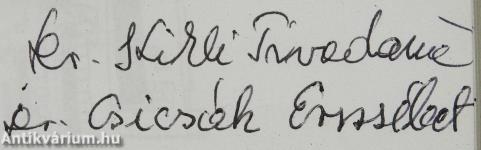 dr. Skirli Tivadarné
dr. Csicsák Erzsébet
Antikvárium.hu